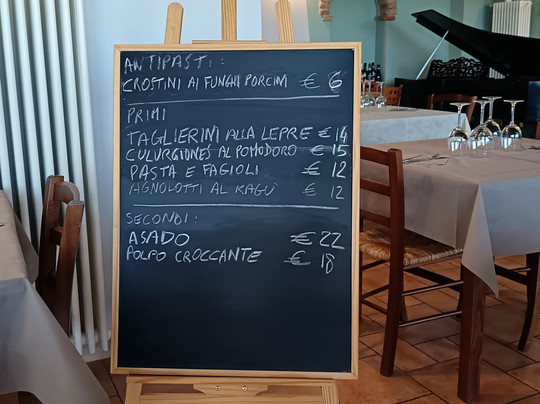 ANTIPASTI:
CROSTINI AI FUNGHI PORCINI € 6
PRIMI
TAGLIERINI ALLA LEPRE € 14
CULURGIONES AL POMODORO € 15
PASTA E FAGIOLI € 12
AGNOLOTTI AL RAGU' € 12
SECONDI:
ASADO € 22
POLPO CROCCANTE € 18